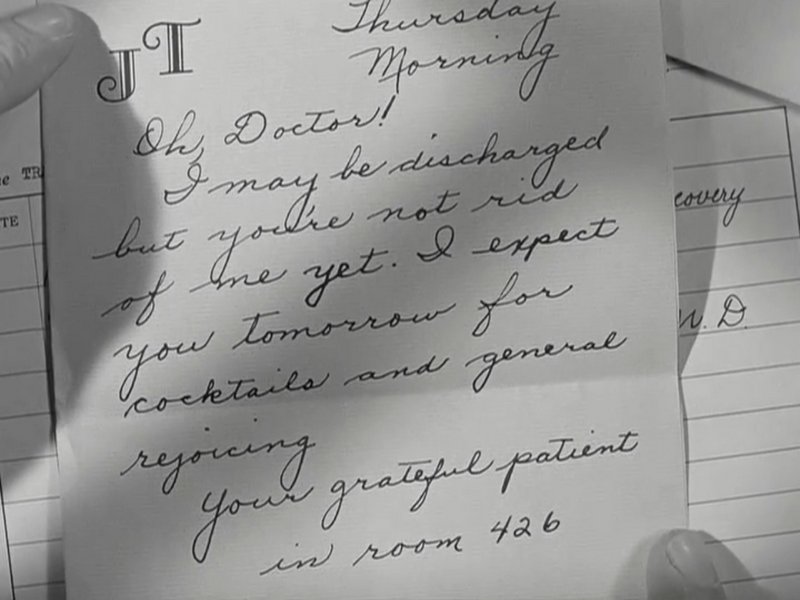 JT
Thursday
Morning
Oh, Doctor!
I may be discharged
but you're not rid
of me yet. I expect
you tomorrow for
cocktails and general
rejoicing
Your grateful patient
in room 426
TR
TE
covery
D.